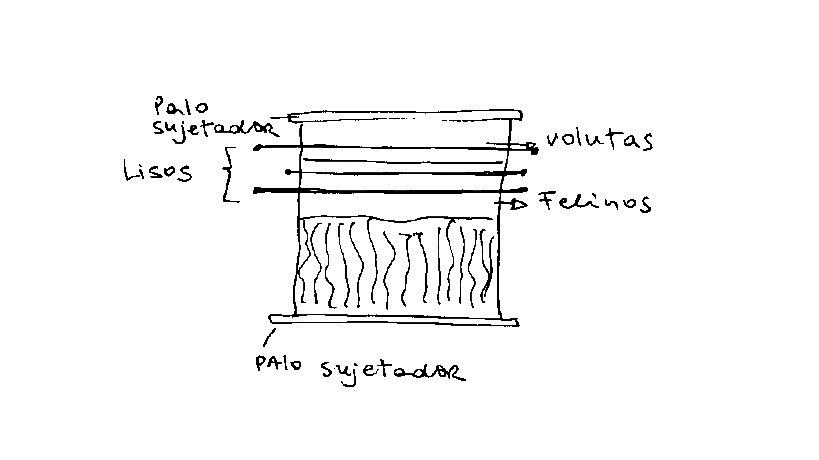 Palo
sujetador
volutas
Lisos
Felinos
PAlo sujetador